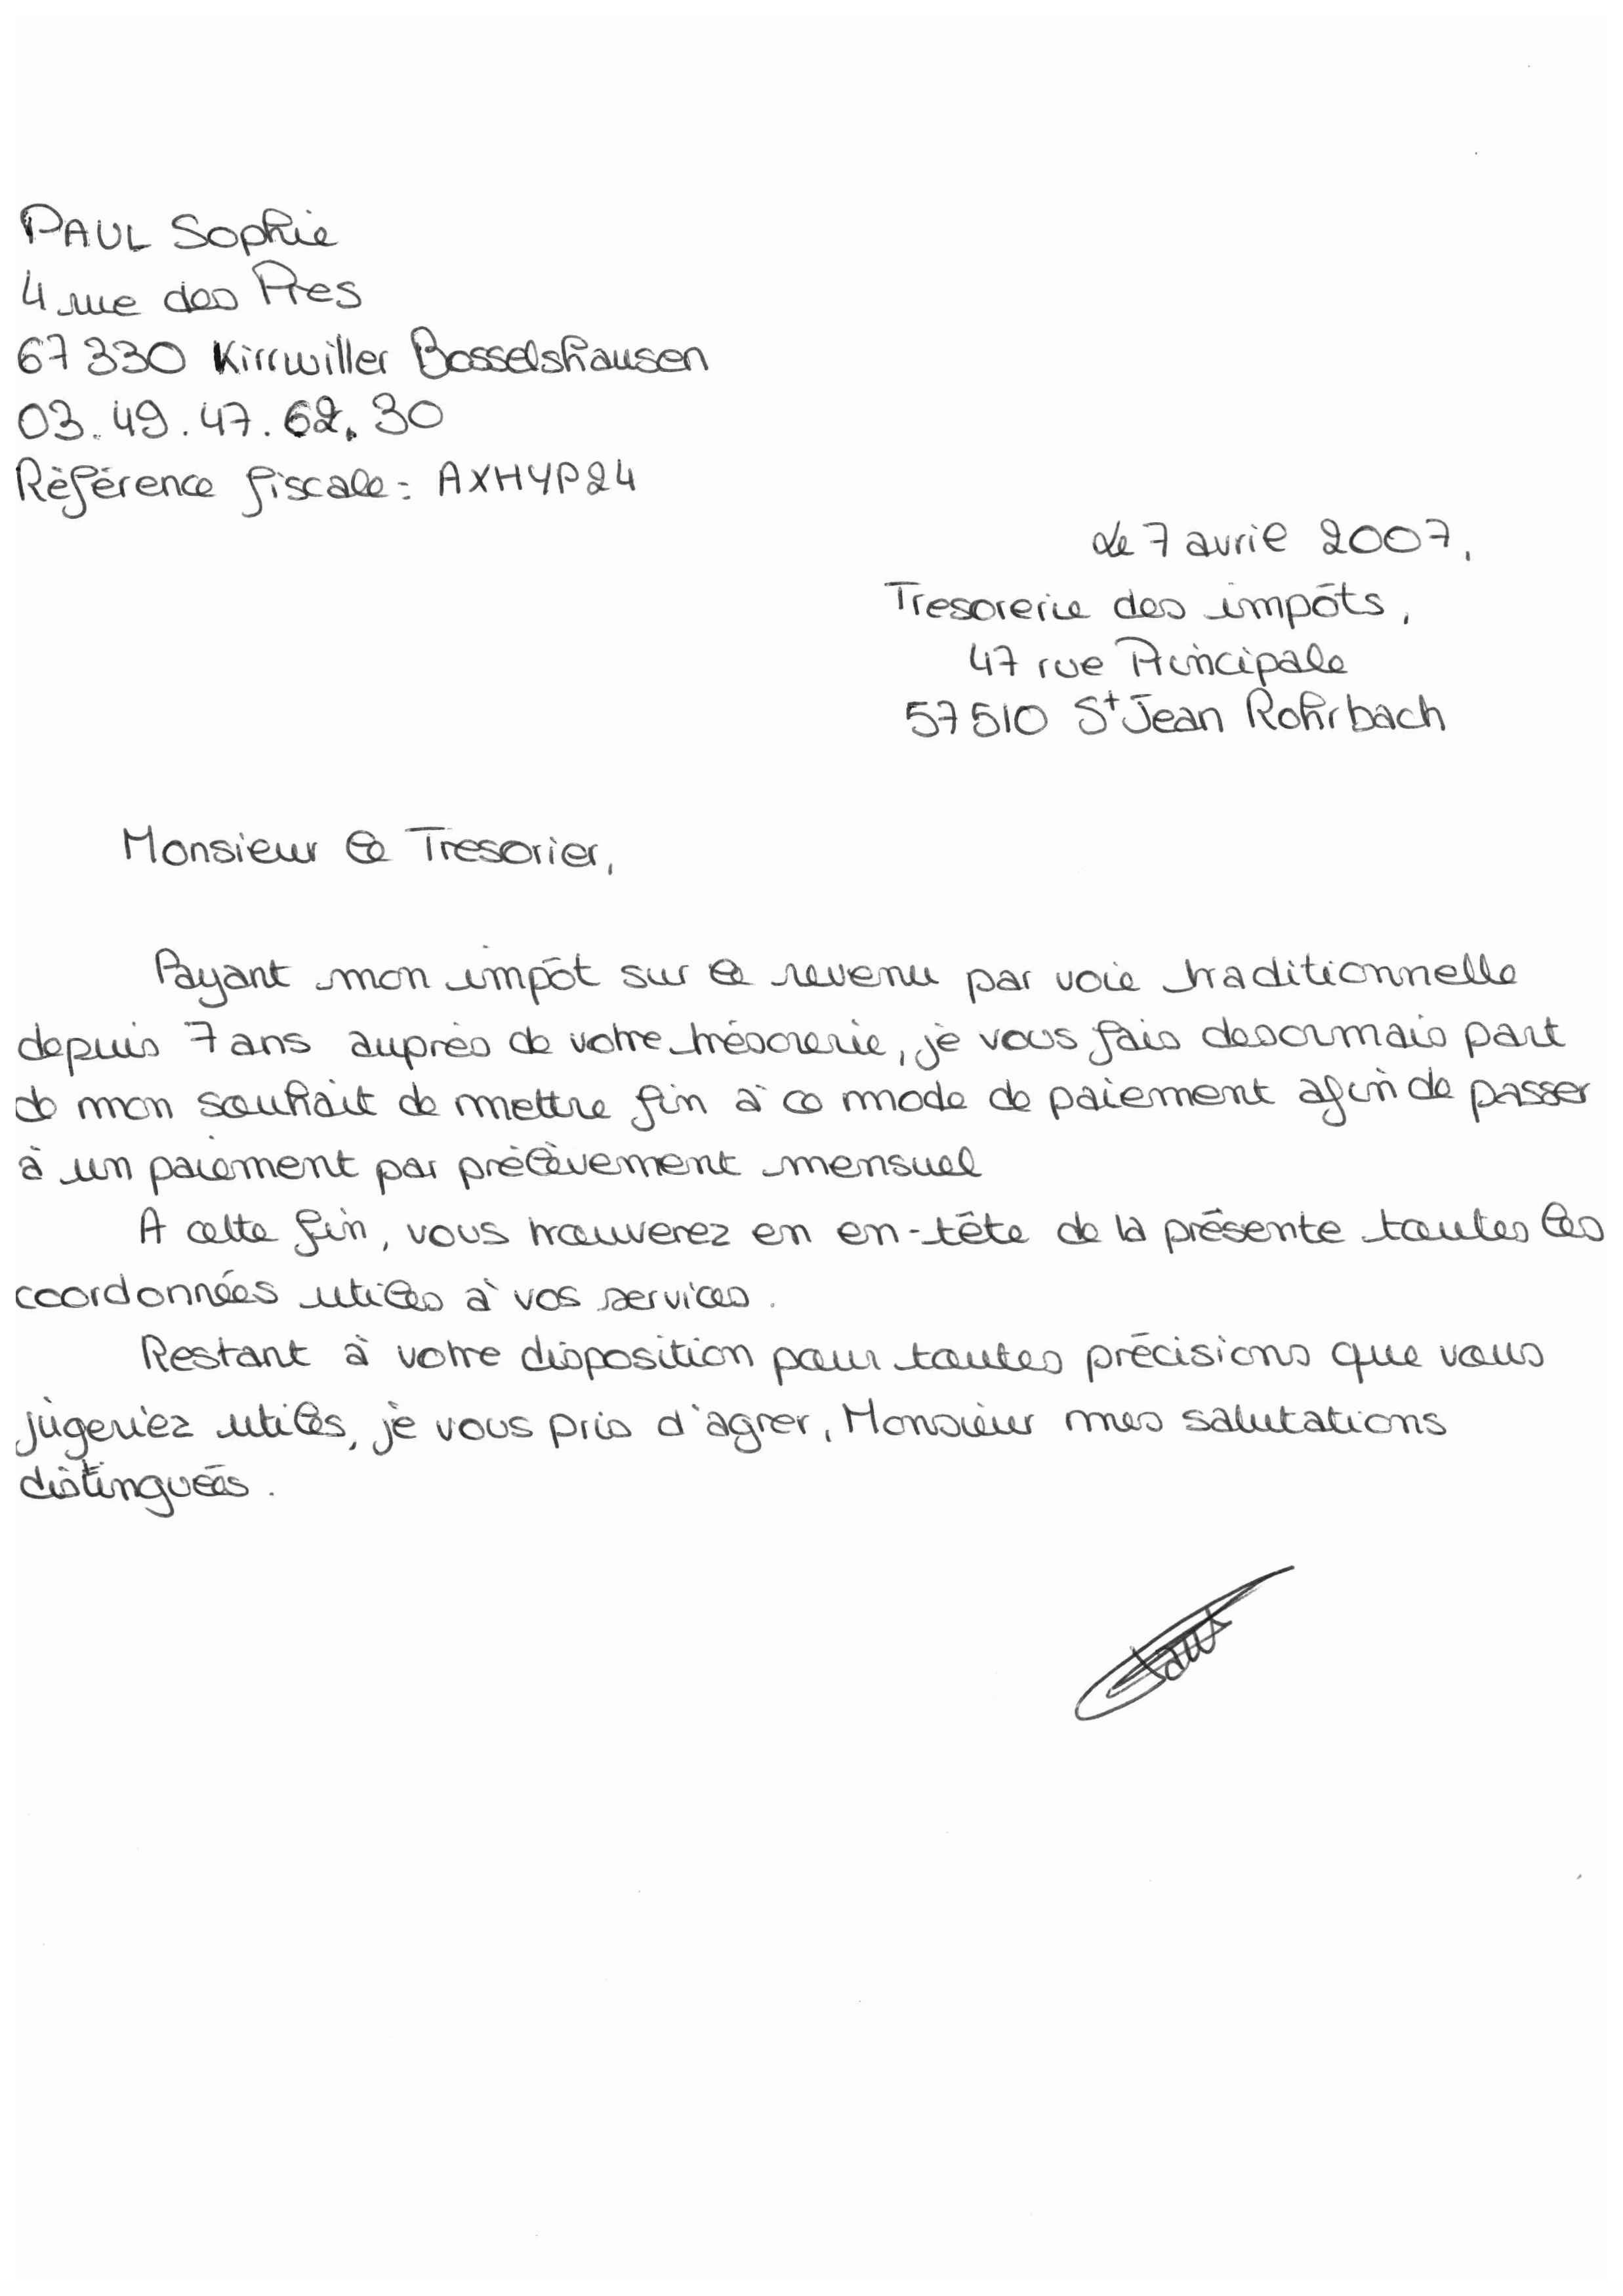 PAUL Sophie
4 rue des Pres
67 330 Kirrwiller Bosselshausen
03.49.47.62.30
Référence fiscale : AXHYP24
le 7 avril 2007,
Tresorerie des impôts,
47 rue Principale
57510 St Jean Rohrbach
Monsieur le Tresorier,
Payant mon impôt sur le revenu par voie traditionnelle
depuis 7 ans auprès de votre trésorerie, je vous fais desormais part
de mon souhait de mettre fin à ce mode de paiement afin de passer
à un paiement par prélèvement mensuel
A cette fin, vous trouverez en en-tête de la présente toutes les
coordonnées utiles à vos services.
Restant à votre disposition pour toutes précisions que vous
jugeriez utiles, je vous pris d'agrer, Monsieur mes salutations
distinguées.
Paul